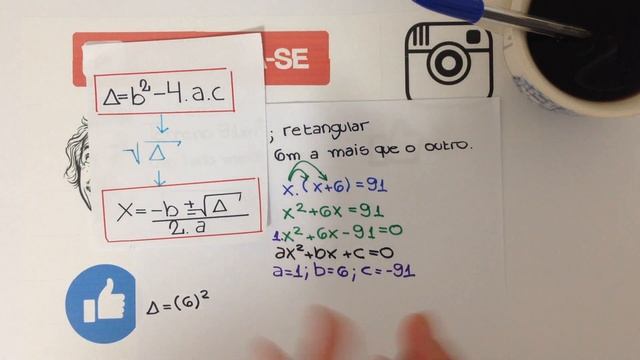 -SE
Δ=b²-4.a.c
√Δ
X=-b±√Δ
2.a
; retangular
6m a mais que o outro.
x.(x+6)=91
x²+6x=91
1.x²+6x-91=0
ax²+bx+c=0
a=1; b=6; c=-91
Δ=(6)²